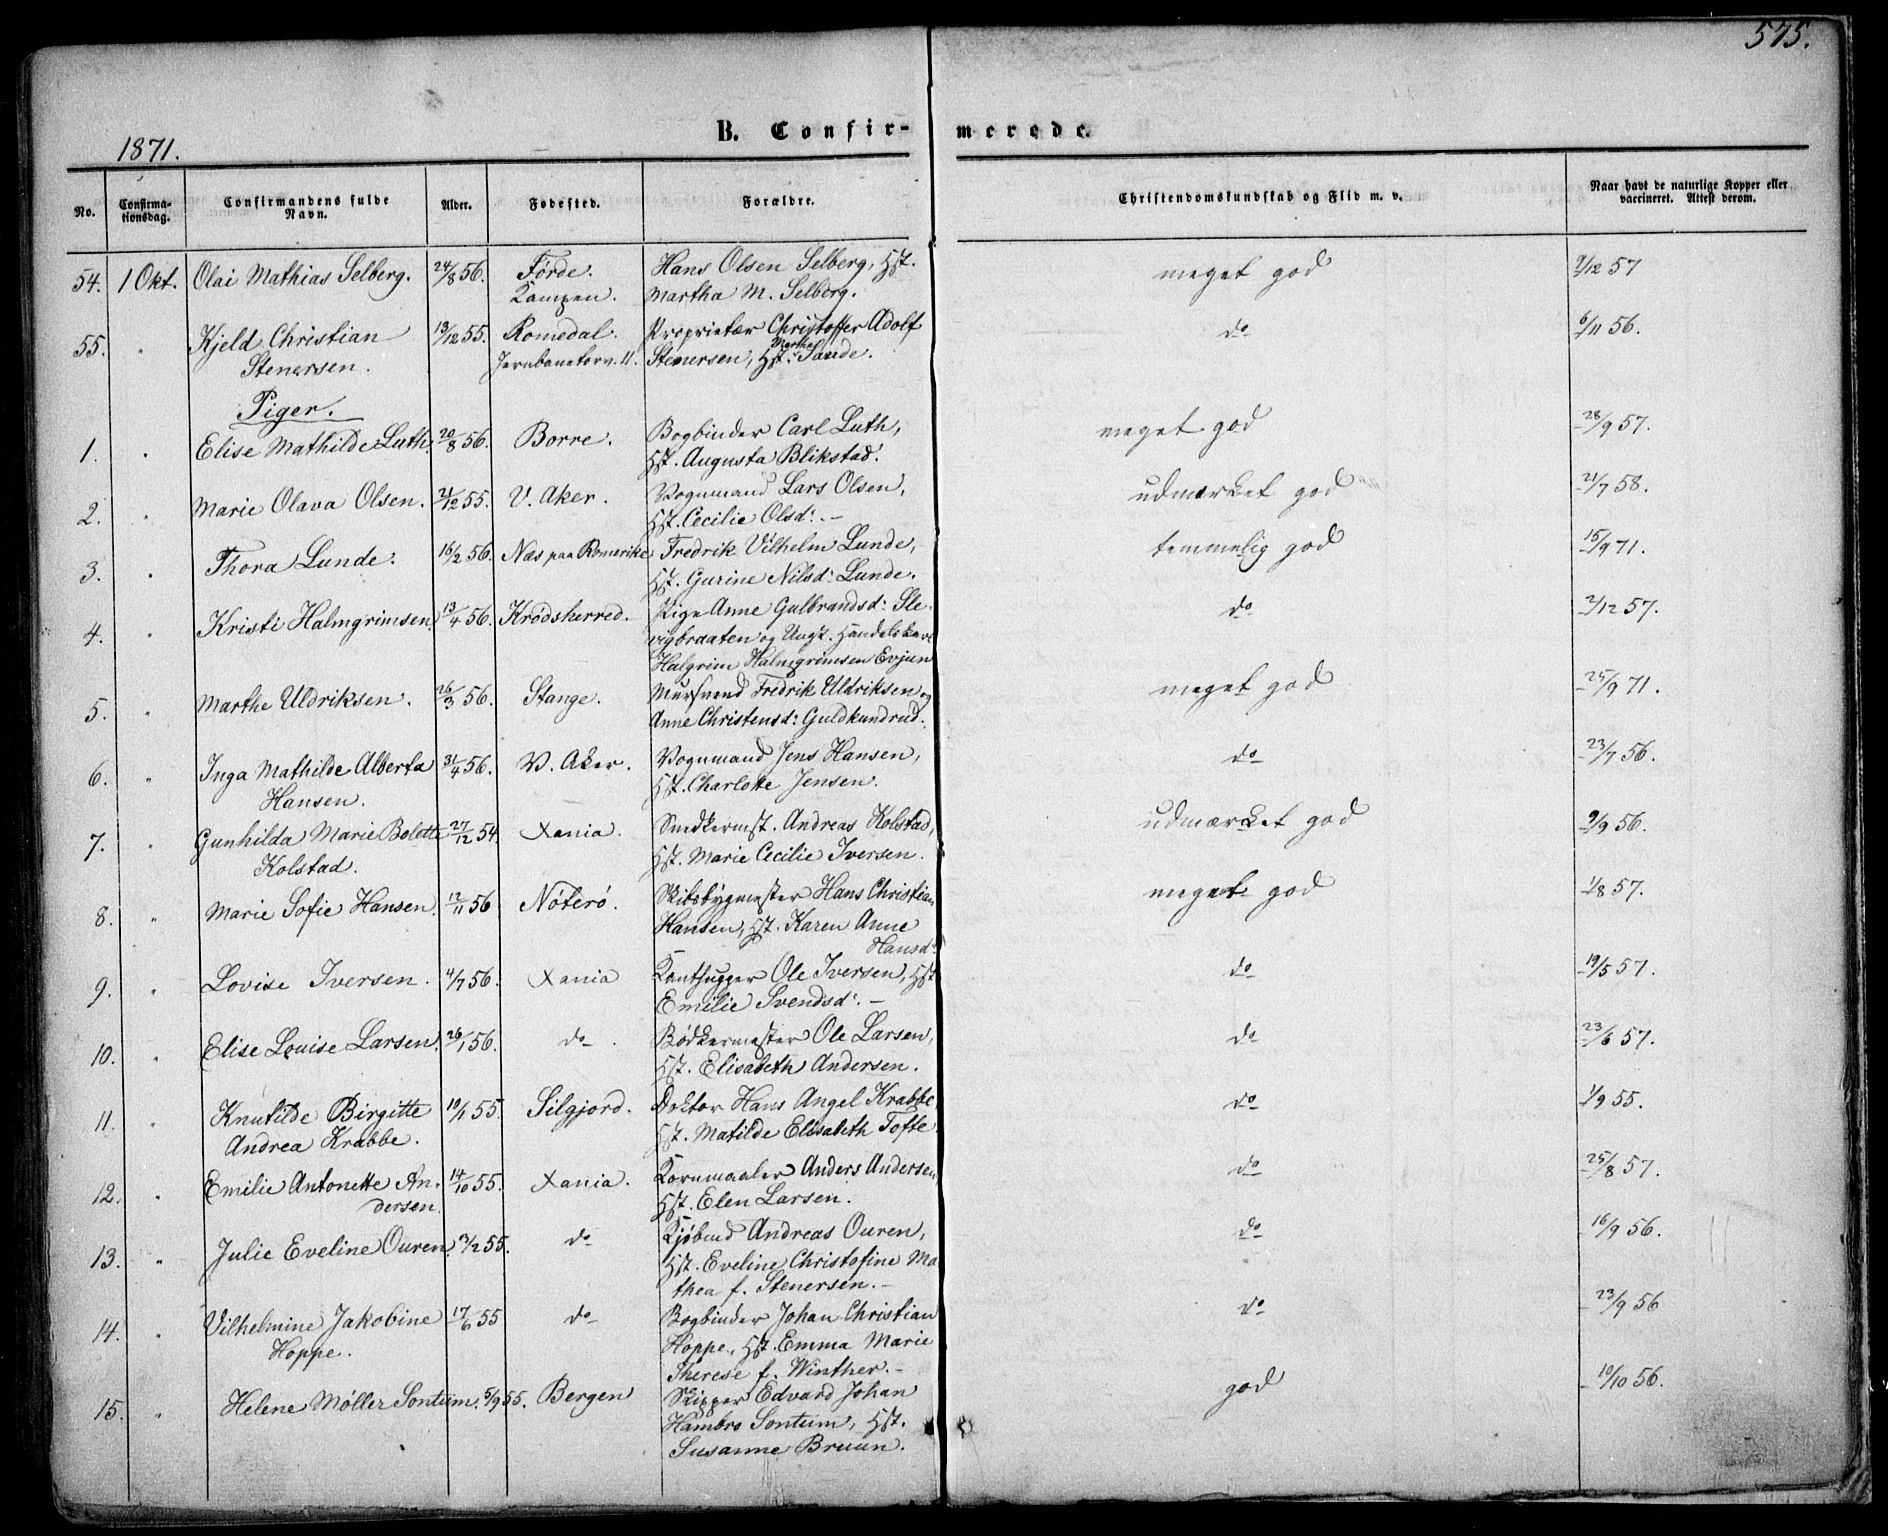 575.
1871.
B. Confir-merede.
No. Confirmationsdag. Confirmandens fulde Navn. Alder. Fødested. Forældre. Christendomskundskab og Flid m. v. Naar havt de naturlige Kopper eller vaccineret. Attest derom.
54. 1 Okt. Olai Mathias Selberg. 24/8 56. Førde. Hans Olsen Selberg, Hst. meget god 7/12 57
Kampen. Martha M. Selberg.
55. " Kjeld Christian 13/12 55. Romedal. Proprietær Christoffer Adolf do 6/11 56.
Stenersen. Jernbanetorv. 11. Stenersen, Hst. Marthe Sande.
Piger.
1. " Elise Mathilde Luth. 20/8 56. Borre. Bogbinder Carl Luth, meget god 28/9 57.
Hst. Augusta Blikstad.
2. " Marie Olava Olsen. 21/12 55. V. Aker. Vognmand Lars Olsen, udmærket god 21/7 58.
Hst. Cecilie Olsd: -
3. " Thora Lunde. 16/2 56. Næs paa Romerike. Fredrik Vilhelm Lunde, temmelig god 15/9 71.
Hst. Gurine Nilsd: Lunde.
4. " Kristi Halmgrimsen. 13/4 56. Krødsherred. Pige Anne Gulbrandsd: Sle- do 2/12 57.
vigbraaten og Ungk. Handelskarl
Halgrim Halmgrimsen Evjun
5. " Marthe Uldriksen. 26/3 56. Stange. Mursvend Fredrik Uldriksen og meget god 25/9 71.
Anne Christensd: Guldkundrud.
6. " Inga Mathilde Alberta 31/4 56. V. Aker. Vognmand Jens Hansen, do 23/7 56.
Hansen. Hst. Charlotte Jensen.
7. " Gunhilda Marie Bolette 27/12 54. Xania. Snedkermst. Andreas Kolstad, udmærket god 9/9 56.
Kolstad. Hst. Marie Cecilie Iversen.
8. " Marie Sofie Hansen. 12/11 56 Nøterø. Skibsbygmester Hans Christian meget god 1/8 57.
Hansen, Hst. Karen Anne
Hansd:
9. " Lovise Iversen. 4/7 56. Xania Kanthugger Ole Iversen, Hst. do 19/5 57.
Emilie Svendsd: -
10. " Elise Louise Larsen. 26/1 56. do. Bødkermester Ole Larsen, do 23/6 57.
Hst. Elisabeth Andersen.
11. " Knutilde Birgitte 10/1 55. Silgjord. Doktor Hans Angel Krabbe, do 1/9 55.
Andrea Krabbe. Hst. Matilde Elisabeth Tofte.
12. " Emilie Antonette An- 14/10 55. Xania. Kornmaaler Anders Andersen, do 25/8 57.
dersen. Hst. Elen Larsen.
13. " Julie Eveline Ouren. 13/2 55. do Kjøbmd Andreas Ouren, do 16/9 56.
Hst. Eveline Christofine Ma
thea f. Stenersen. -
14. " Vilhelmine Jakobine 17/6 55 do Bogbinder Johan Christian do 23/9 56
Hoppe. Hoppe, Hst. Emma Marie
Therese f. Winther. -
15. " Helene Møller Sontum. 5/9 55. Bergen Skipper Edvard Johan god 10/10 56.
Hambro Sontum, Hst.
Susanne Bruun.